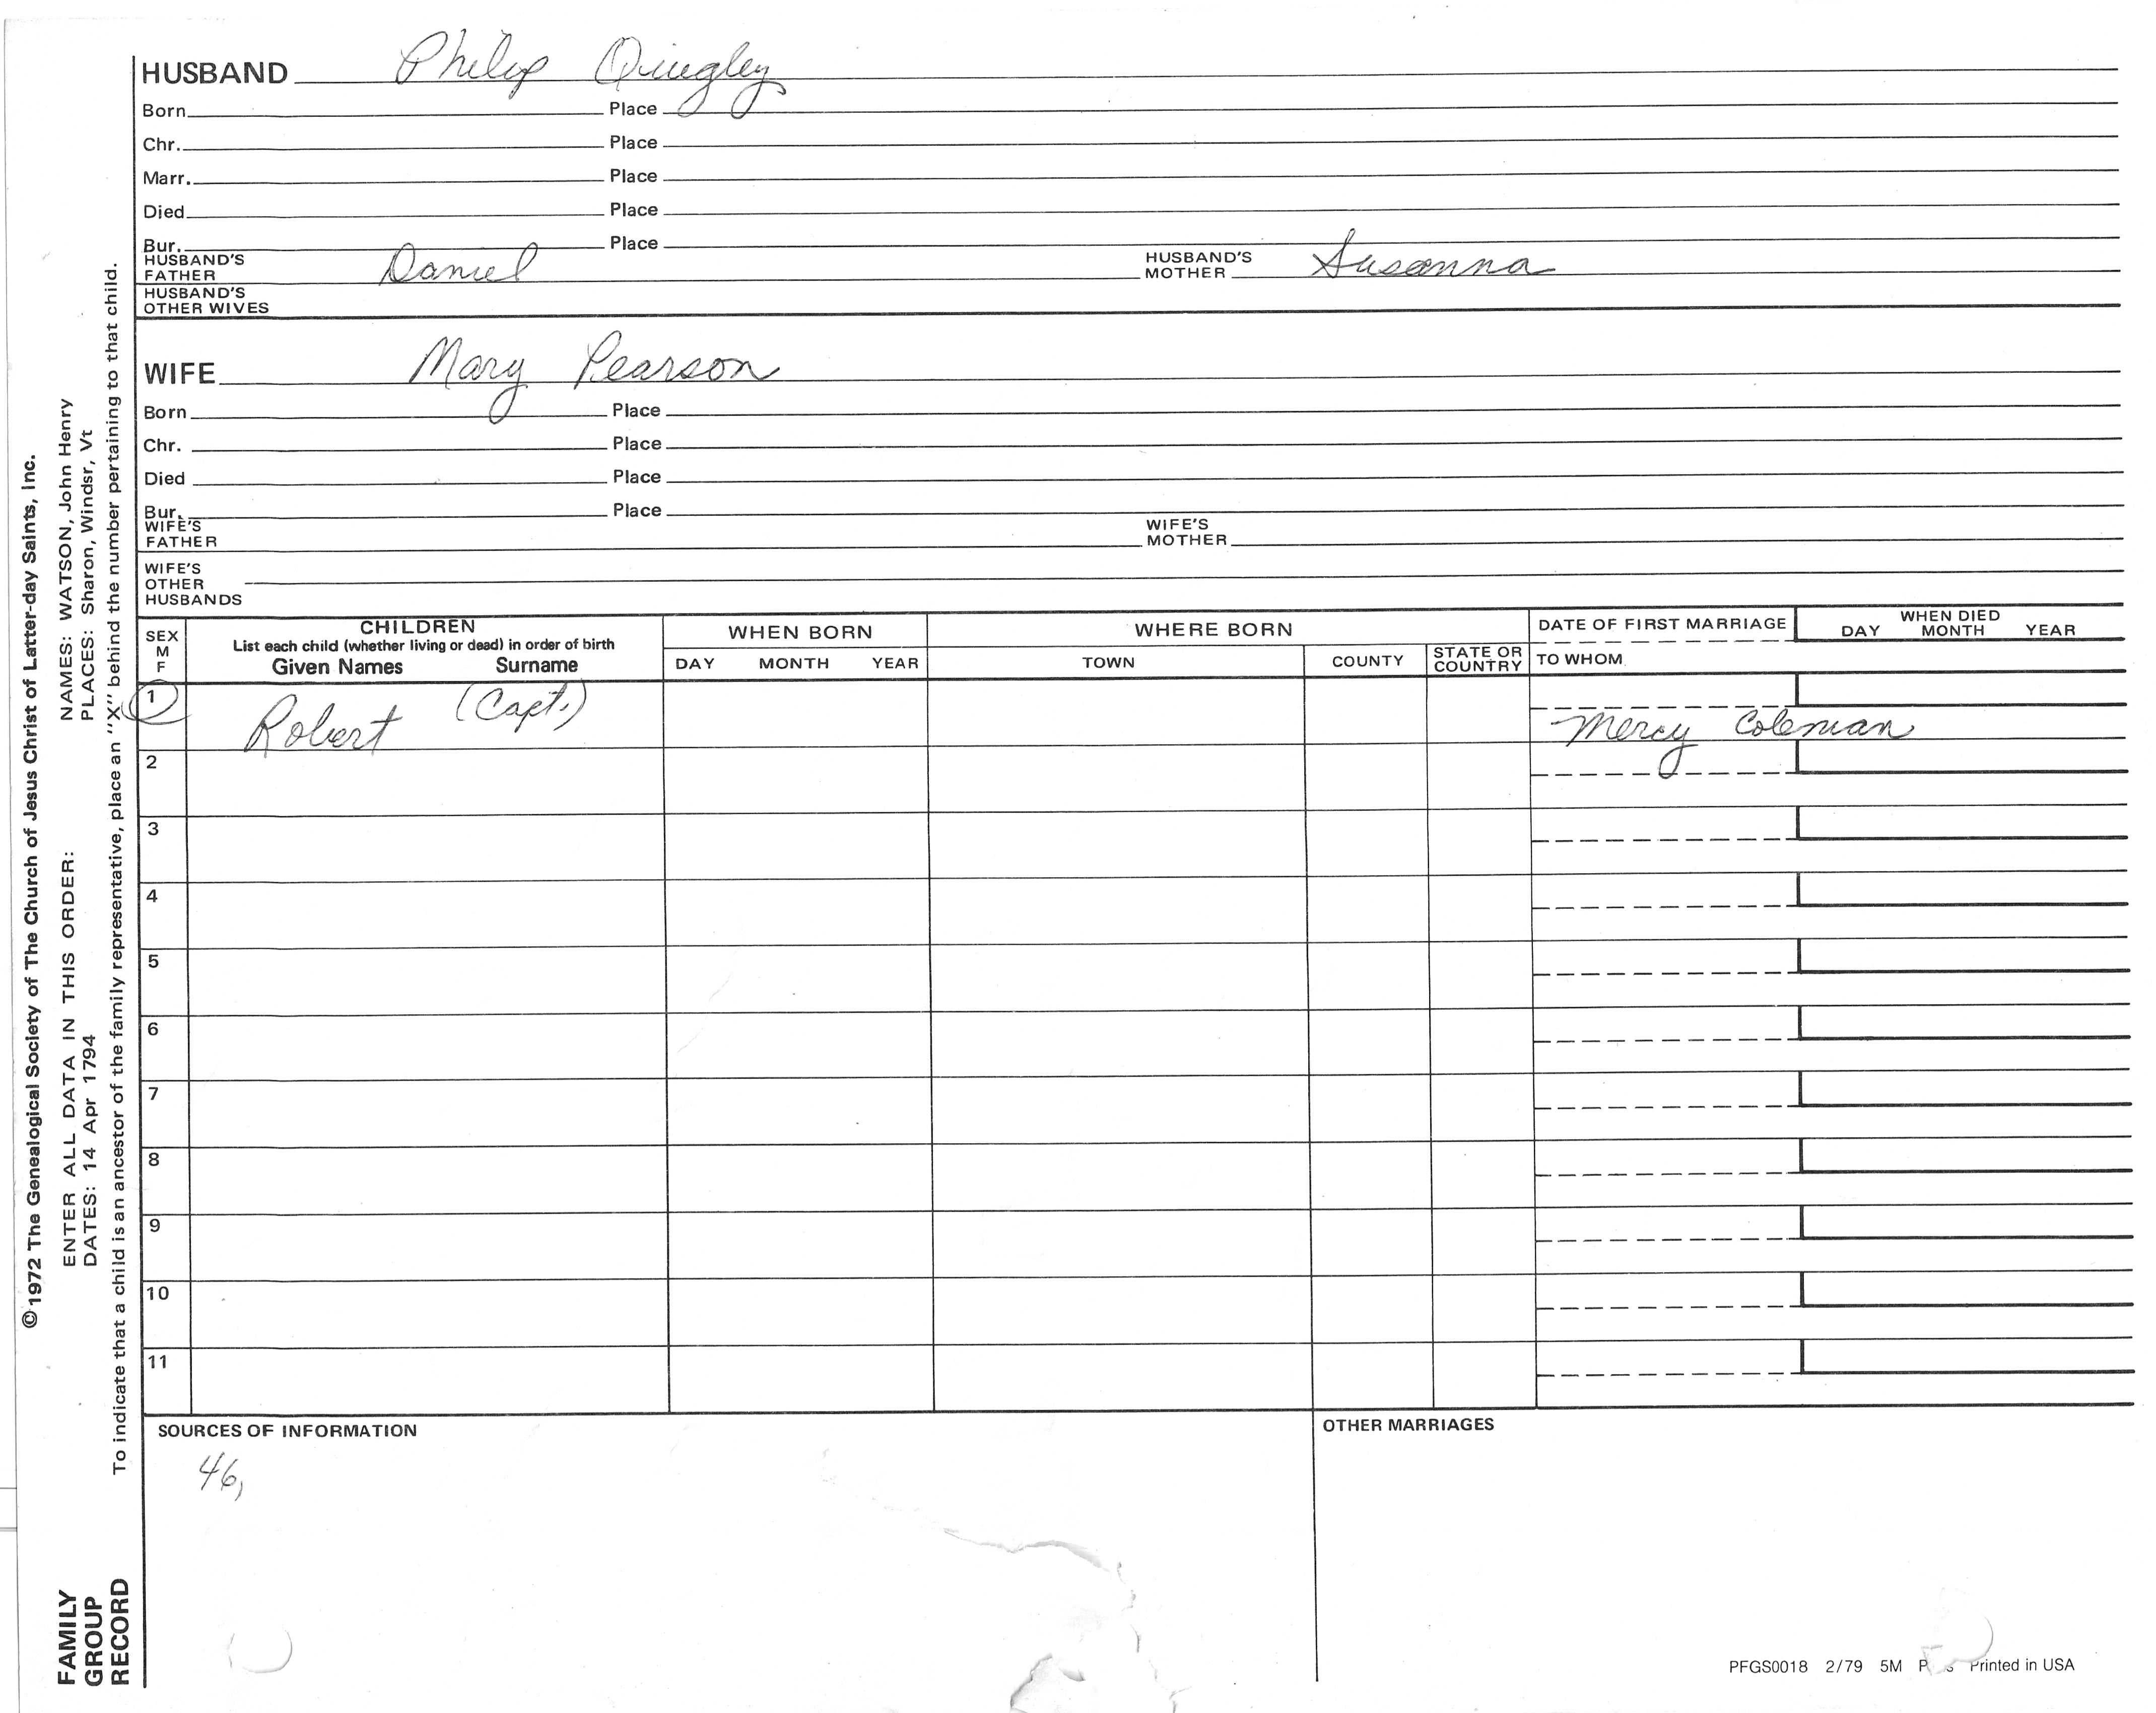 HUSBAND Philip Quigley
Born Place
Chr. Place
Marr. Place
Died Place
Bur. Place
HUSBAND'S FATHER Daniel HUSBAND'S MOTHER Susanna
HUSBAND'S OTHER WIVES
WIFE Mary Pearson
Born Place
Chr. Place
Died Place
Bur. Place
WIFE'S FATHER WIFE'S MOTHER
WIFE'S OTHER HUSBANDS
SEX M F
CHILDREN
List each child (whether living or dead) in order of birth
Given Names Surname
WHEN BORN
DAY MONTH YEAR
WHERE BORN
TOWN COUNTY STATE OR COUNTRY
DATE OF FIRST MARRIAGE
TO WHOM
WHEN DIED
DAY MONTH YEAR
1 Robert (Capt.) Mercy Coleman
2
3
4
5
6
7
8
9
10
11
SOURCES OF INFORMATION
46,
OTHER MARRIAGES
PFGS0018 2/79 5M Printed in USA
©1972 The Genealogical Society of The Church of Jesus Christ of Latter-day Saints, Inc.
ENTER ALL DATA IN THIS ORDER:
NAMES: WATSON, John Henry
DATES: 14 Apr 1794
PLACES: Sharon, Windsr, Vt
To indicate that a child is an ancestor of the family representative, place an "X" behind the number pertaining to that child.
FAMILY
GROUP
RECORD